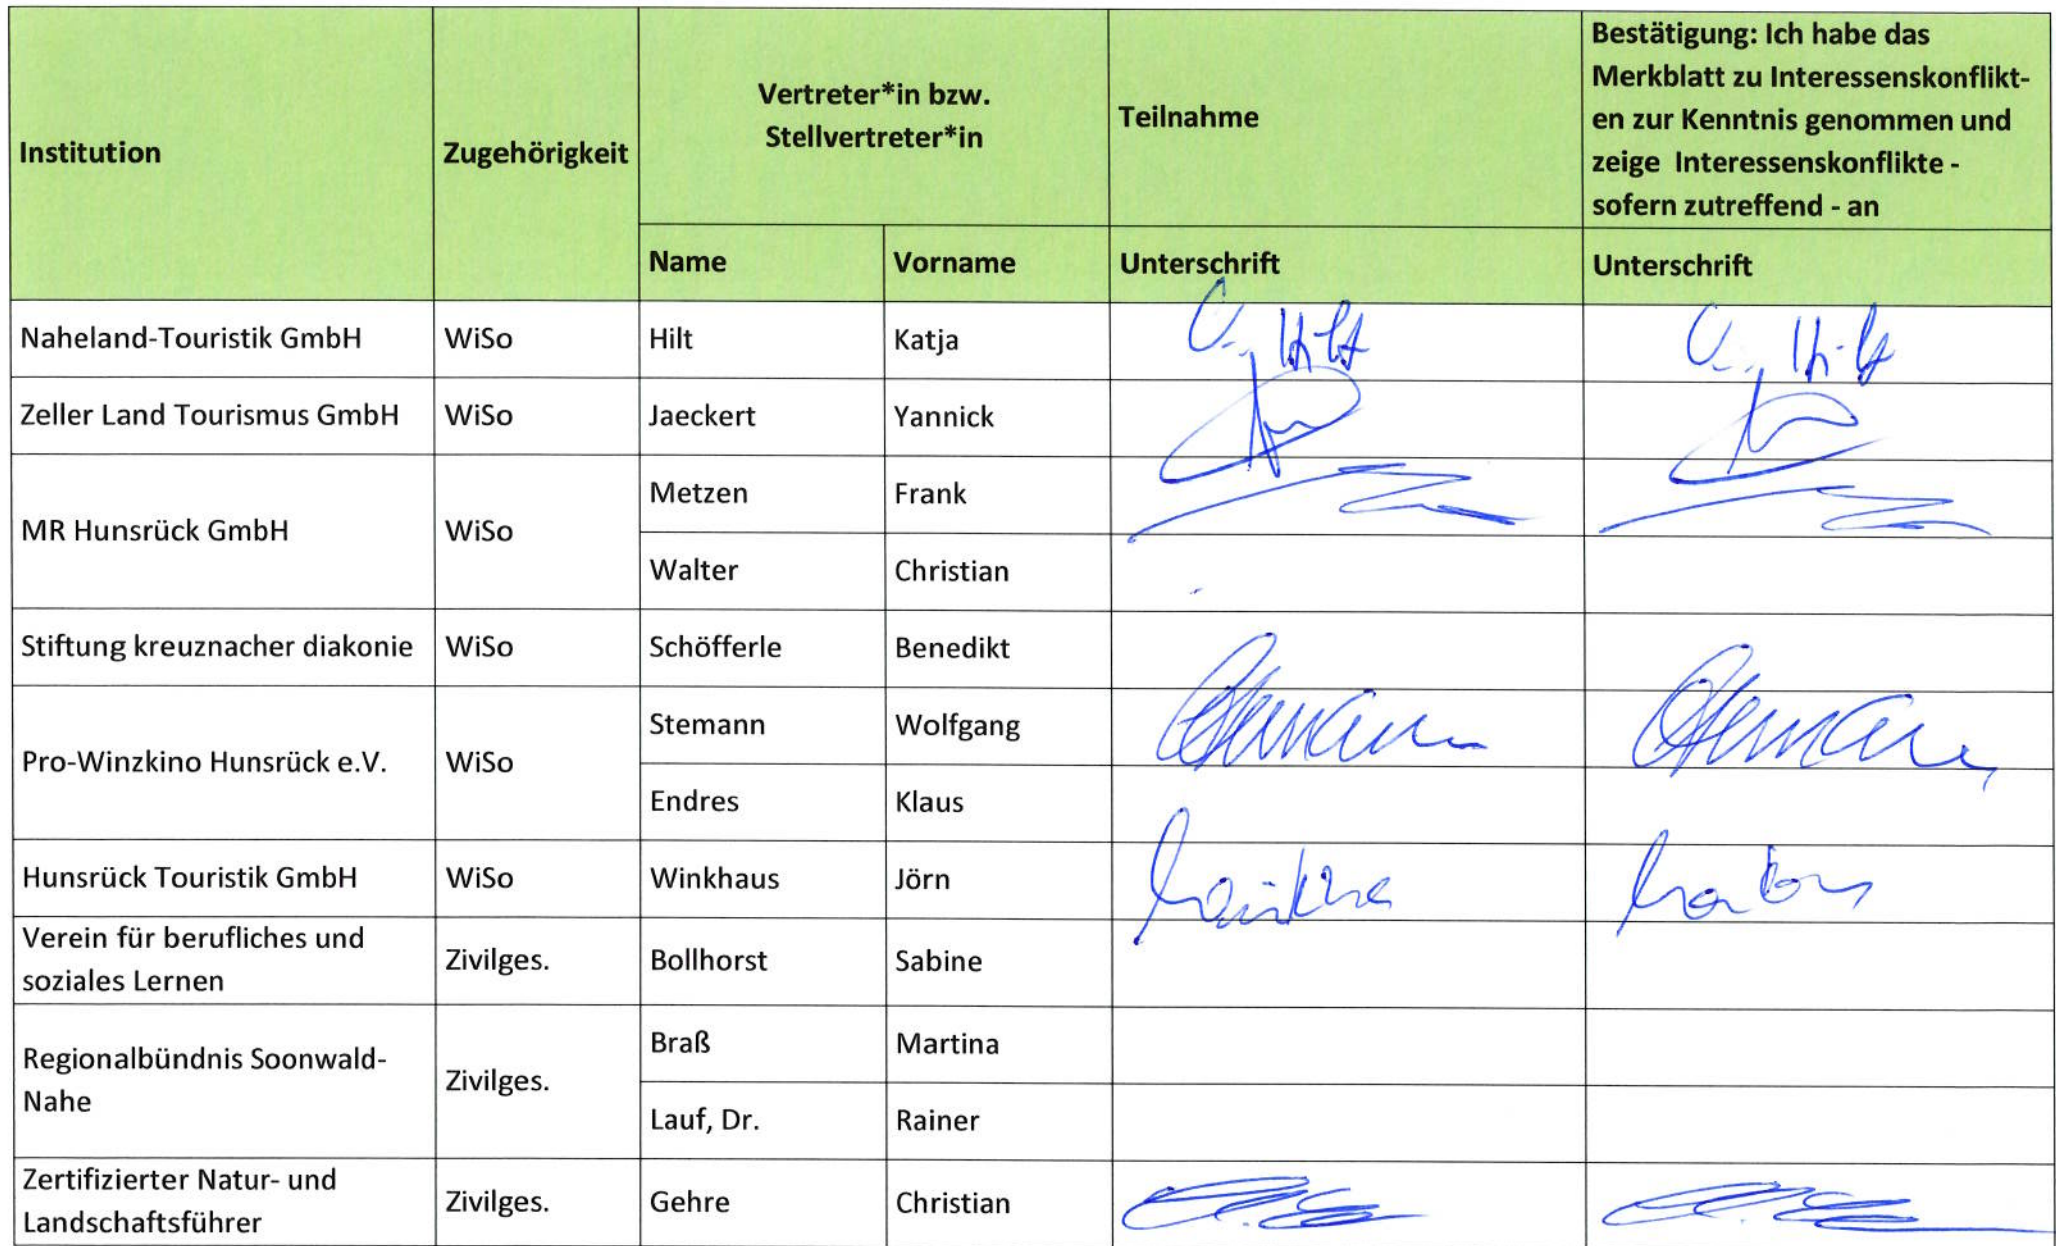 Institution
Zugehörigkeit
Vertreter*in bzw.
Stellvertreter*in
Teilnahme
Bestätigung: Ich habe das
Merkblatt zu Interessenskonflikt-
en zur Kenntnis genommen und
zeige Interessenskonflikte -
sofern zutreffend - an
Name
Vorname
Unterschrift
Unterschrift
Naheland-Touristik GmbH
WiSo
Hilt
Katja
Hilt
Hilt
Zeller Land Tourismus GmbH
WiSo
Jaeckert
Yannick
MR Hunsrück GmbH
WiSo
Metzen
Frank
Walter
Christian
Stiftung kreuznacher diakonie
WiSo
Schöfferle
Benedikt
Pro-Winzkino Hunsrück e.V.
WiSo
Stemann
Wolfgang
Stemann
Stemann
Endres
Klaus
Hunsrück Touristik GmbH
WiSo
Winkhaus
Jörn
Verein für berufliches und
soziales Lernen
Zivilges.
Bollhorst
Sabine
Regionalbündnis Soonwald-
Nahe
Zivilges.
Braß
Martina
Lauf, Dr.
Rainer
Zertifizierter Natur- und
Landschaftsführer
Zivilges.
Gehre
Christian